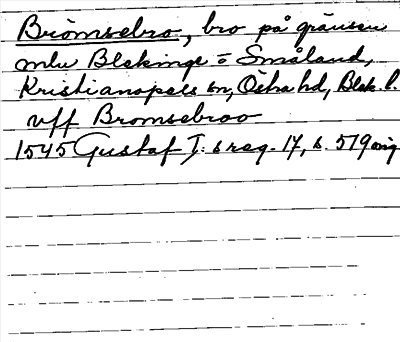 Brömsebro, bro på gränsen
mlu Blekinge = Småland,
Kristianopels sn, Östra hd, Blek. l.
vff Bromsebroo
1545 Gustaf I:s reg. 17, s. 579